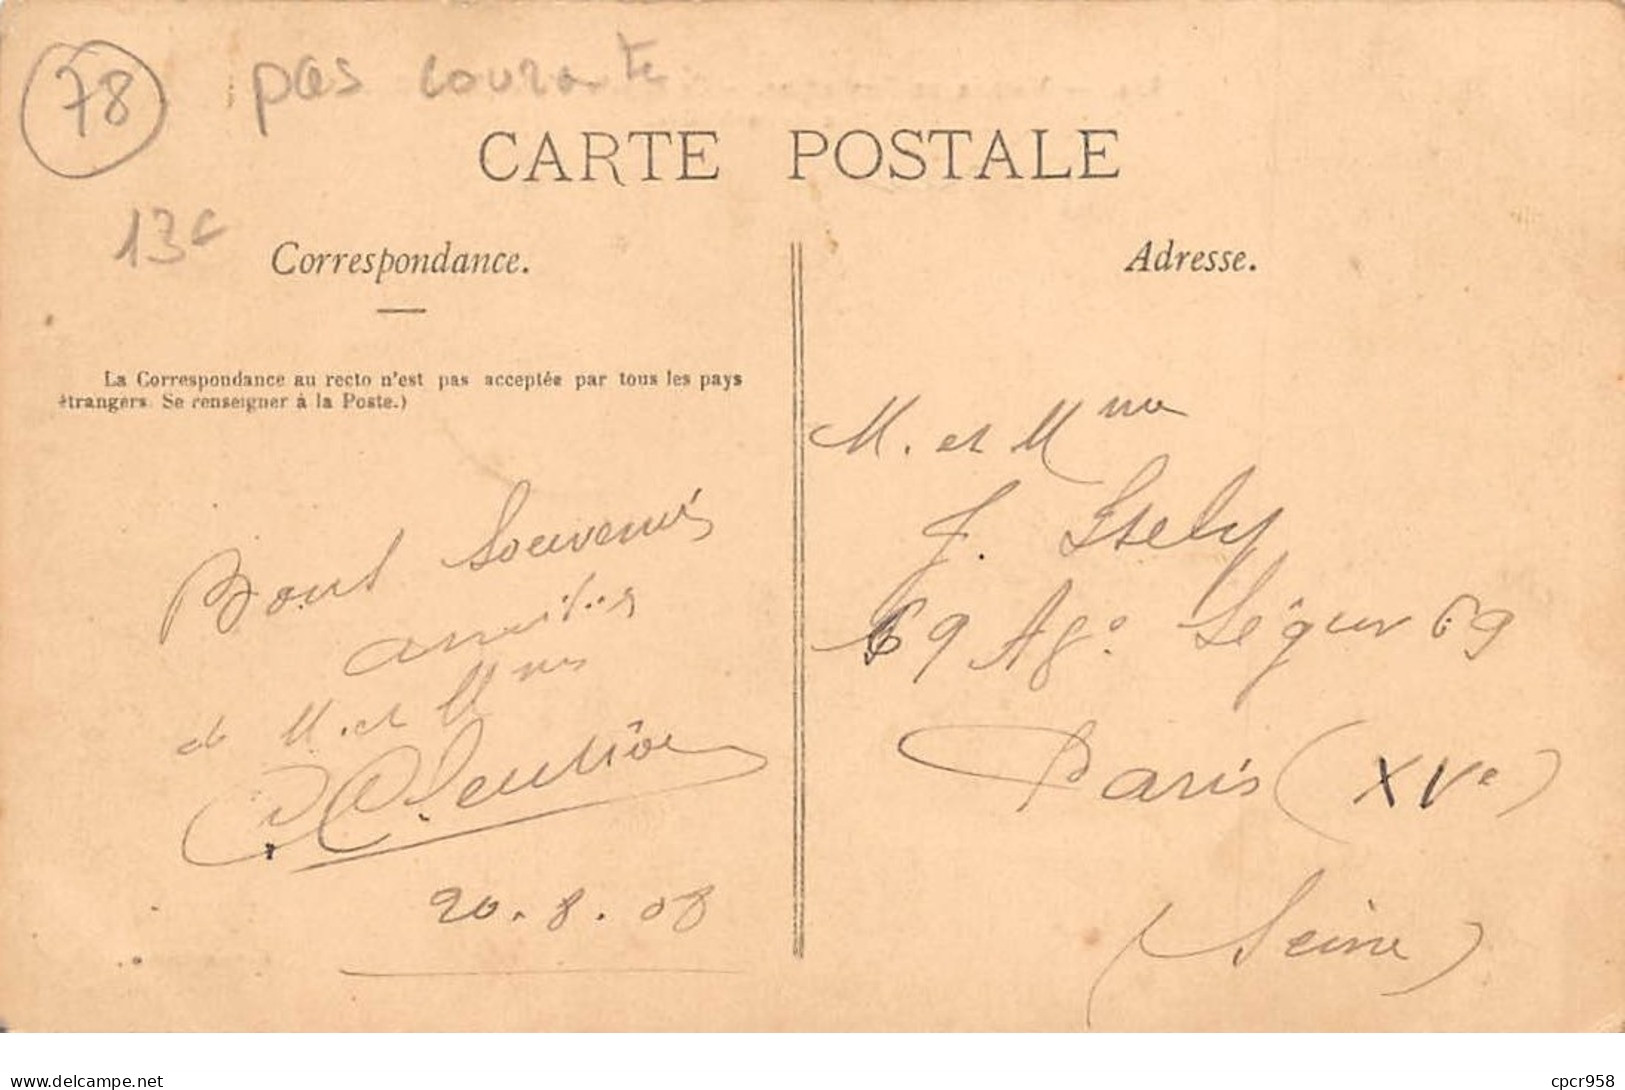 78 pas courante
CARTE POSTALE
13€
Correspondance.
La Correspondance au recto n'est pas acceptée par tous les pays
étrangers. Se renseigner à la Poste.)
Bons Souvenirs
amitiés
de M. et Mme
20.8.08
Adresse.
M. et Mme
J.
69 Ségur 69
Paris (XVe)
(Seine)
delcampe.net
cpcr958